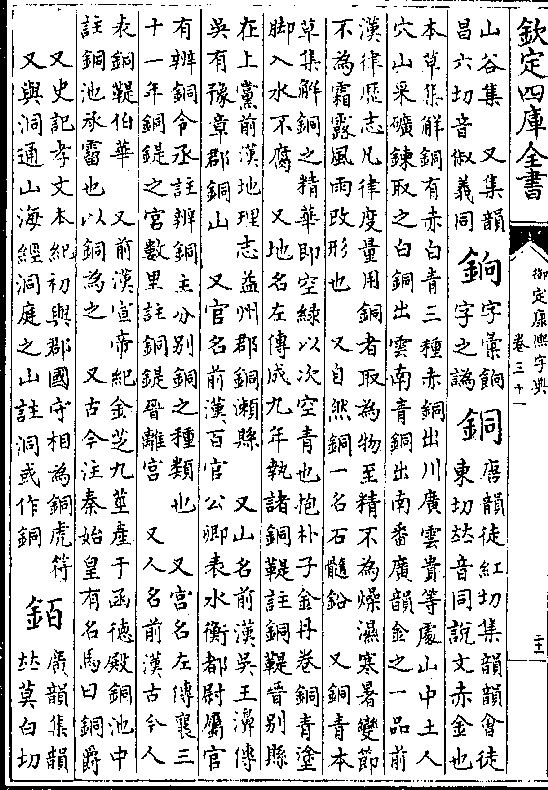 欽定四庫全書
御定康熙字典
卷三十一
山谷集　又集韻
昌六切音俶義同
銄
字彙餉
字之譌
銅
唐韻徒紅切集韻韻會徒
東切𠀤音同說文赤金也
本草集解銅有赤白青三種赤銅出川廣雲貴等處山中土人
穴山采礦鍊取之白銅出雲南青銅出南番廣韻金之一品前
漢律歷志凡律度量用銅者取為物至精不為燥濕寒暑變節
不為霜露風雨改形也　又自然銅一名石髓鉛　又銅青本
草集解銅之精華即空綠以次空青也抱朴子金丹卷銅青塗
脚入水不腐　又地名左傳成九年執諸銅鞮註銅鞮晉別縣
在上黨前漢地理志益州郡銅瀬縣　又山名前漢吳王濞傳
吳有豫章郡銅山　又官名前漢百官公卿表水衡都尉屬官
有辨銅令丞註辨銅主分別銅之種類也　又宮名左傳襄三
十一年銅鍉之宮數里註銅鍉晉離宮　又人名前漢古今人
表銅鞮伯華　又前漢宣帝紀金芝九莖產于函德殿銅池中
註銅池承霤也以銅為之　又古今注秦始皇有名馬曰銅爵
又史記孝文本紀初與郡國守相為銅虎符
又與洞通山海經洞庭之山註洞或作銅
銆
廣韻集韻
𠀤莫白切